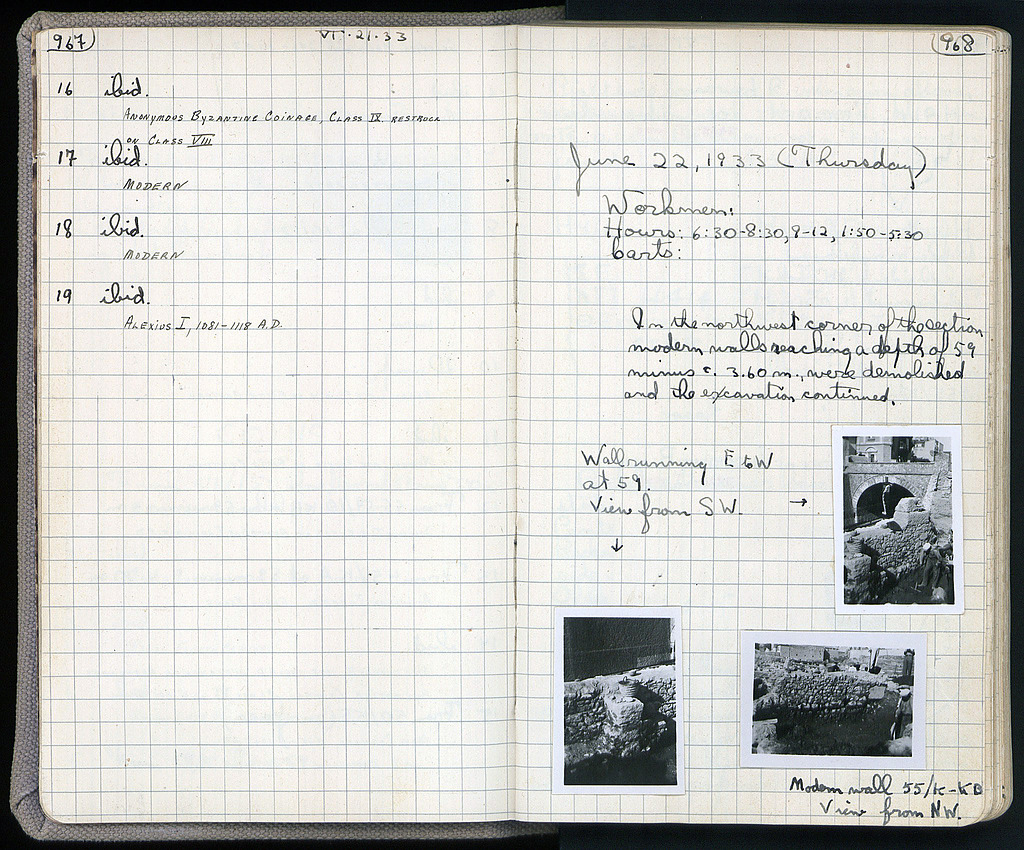 967
VI·21·33
16 ibid.
ANONYMOUS BYZANTINE COINAGE, CLASS IX. RESTRUCK
ON CLASS VIII
17 ibid.
MODERN
18 ibid.
MODERN
19 ibid.
ALEXIUS I, 1081-1118 A.D.
968
June 22, 1933 (Thursday)
Workmen:
Hours: 6:30-8:30, 9-12, 1:50-5:30
Carts:
In the northwest corner of the section
modern walls reaching a depth of 59
minus c. 3.60 m., were demolished
and the excavation continued.
Wall running E to W
at 59.
View from SW. →
↓
Modern wall 55/K-KB
View from NW.